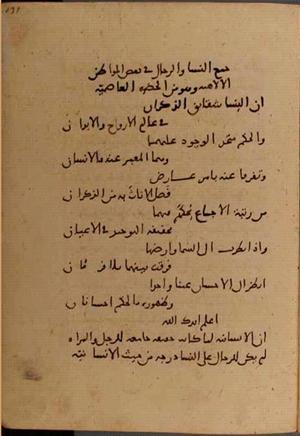 جمع النسا والرجال في بعض المواطن
الالهيه وهو من الحضره العاصمية
ان النسا شقايق الذكران
في عالم الارواح والابدان
والحكم متحد الوجود عليهما
وهما المعبر عنه بالانسان
وتفرقا عنه بامر عارض
فصل الاناث به من الذكران
من رتبة الاجماع يحكم فيهما
بحقيقة التوحيد في الاعيان
واذا نظرت الى السما وارضها
فرقت بينهما بلا فرقان
انظر الى الاحسان عينا واحدا
وظهوره بالحكم احسانان
اعلم ايدك الله
ان الانسانية لما كانت حقيقة جامعة للرجل والمراه
لم يكن للرجال على النسا درجه من حيث الانسانية